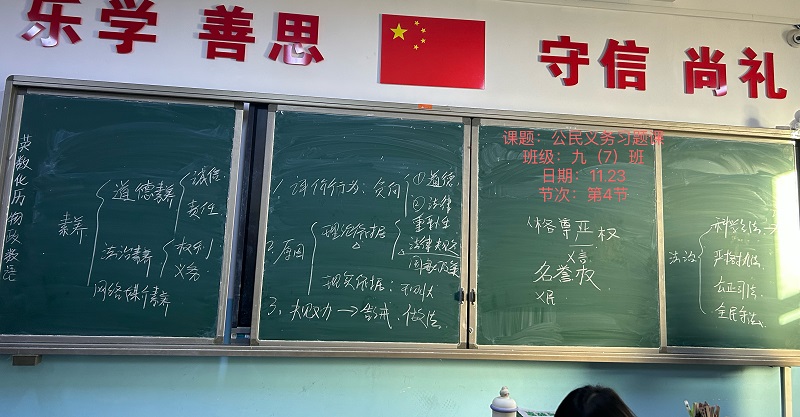 乐学 善思
守信 尚礼
课题：公民义务习题课
班级：九（7）班
日期：11.23
节次：第4节
英数化历物政数
素养
道德素养
诚信
责任
法治素养
权利
义务
网络媒介素养
1. 评价行为：
① 道德
② 法律
2. 原因
理论依据
重要性
法律规定
现实依据：
3.
格尊严权
名誉权
法治
科学立法
严格执法
公正司法
全民守法